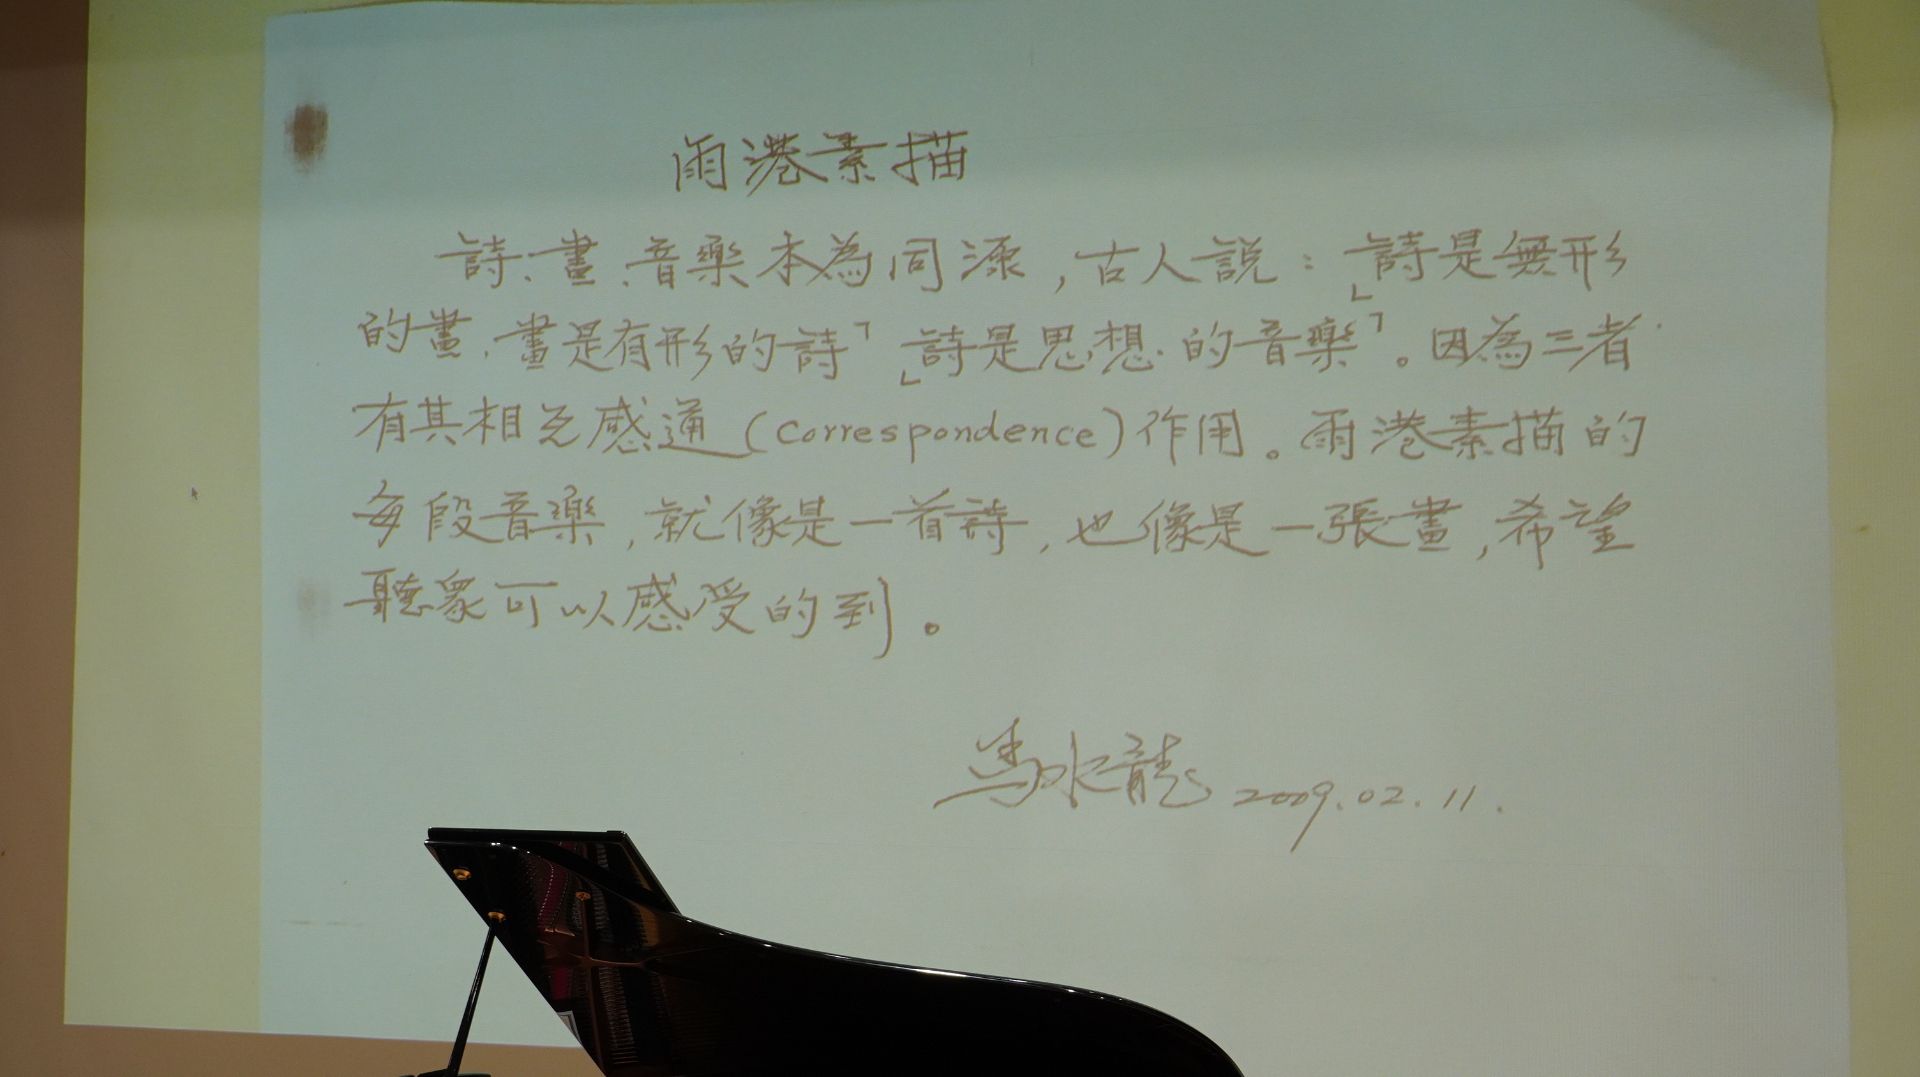 雨港素描
詩、畫、音樂本為同源,古人說:「詩是無形
的畫、畫是有形的詩」「詩是思想的音樂」。因為三者
有其相互感通(correspondence)作用。雨港素描的
每段音樂,就像是一首詩,也像是一張畫,希望
聽衆可以感受的到。
馬水龍 2009.02.11.